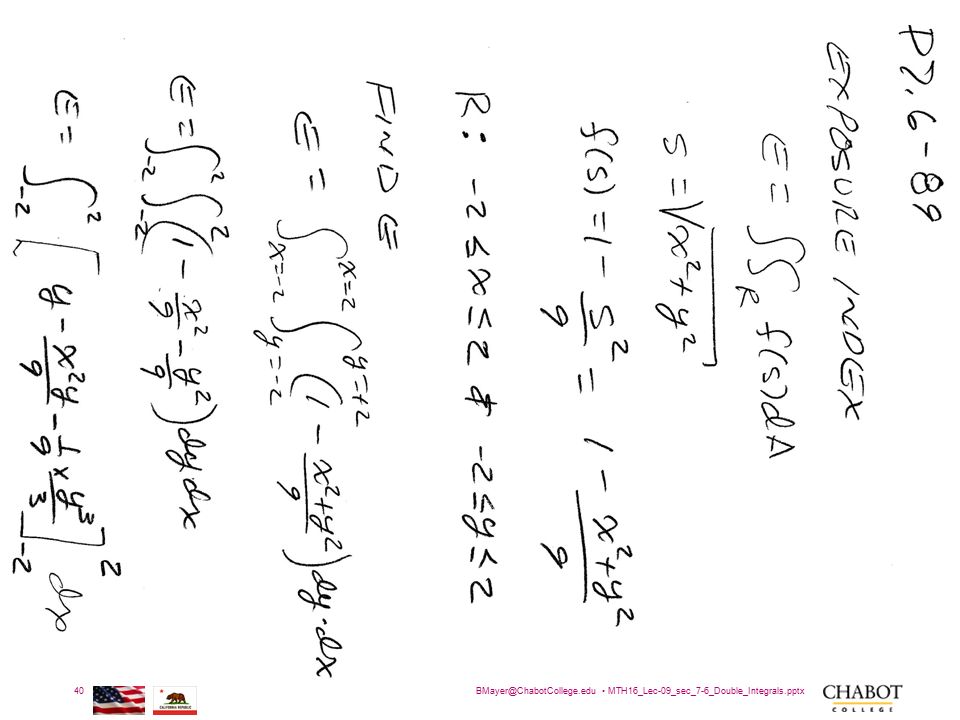 P7.6-89
EXPOSURE INDEX
E = ∫∫_R f(s)dA
S = √(x²+y²)
f(s) = 1 - S²/9 = 1 - (x²+y²)/9
R: -2 ≤ x ≤ 2 & -2 ≤ y ≤ 2
FIND E
E = ∫_{x=-2}^{x=2} ∫_{y=-2}^{y=+2} (1 - (x²+y²)/9) dy·dx
E = ∫_{-2}^{2} ∫_{-2}^{2} (1 - x²/9 - y²/9) dy dx
E = ∫_{-2}^{2} [y - x²y/9 - 1/9 × y³/3]_{-2}^{2} dx
40
BMayer@ChabotCollege.edu • MTH16_Lec-09_sec_7-6_Double_Integrals.pptx
CHABOT
COLLEGE
CALIFORNIA REPUBLIC